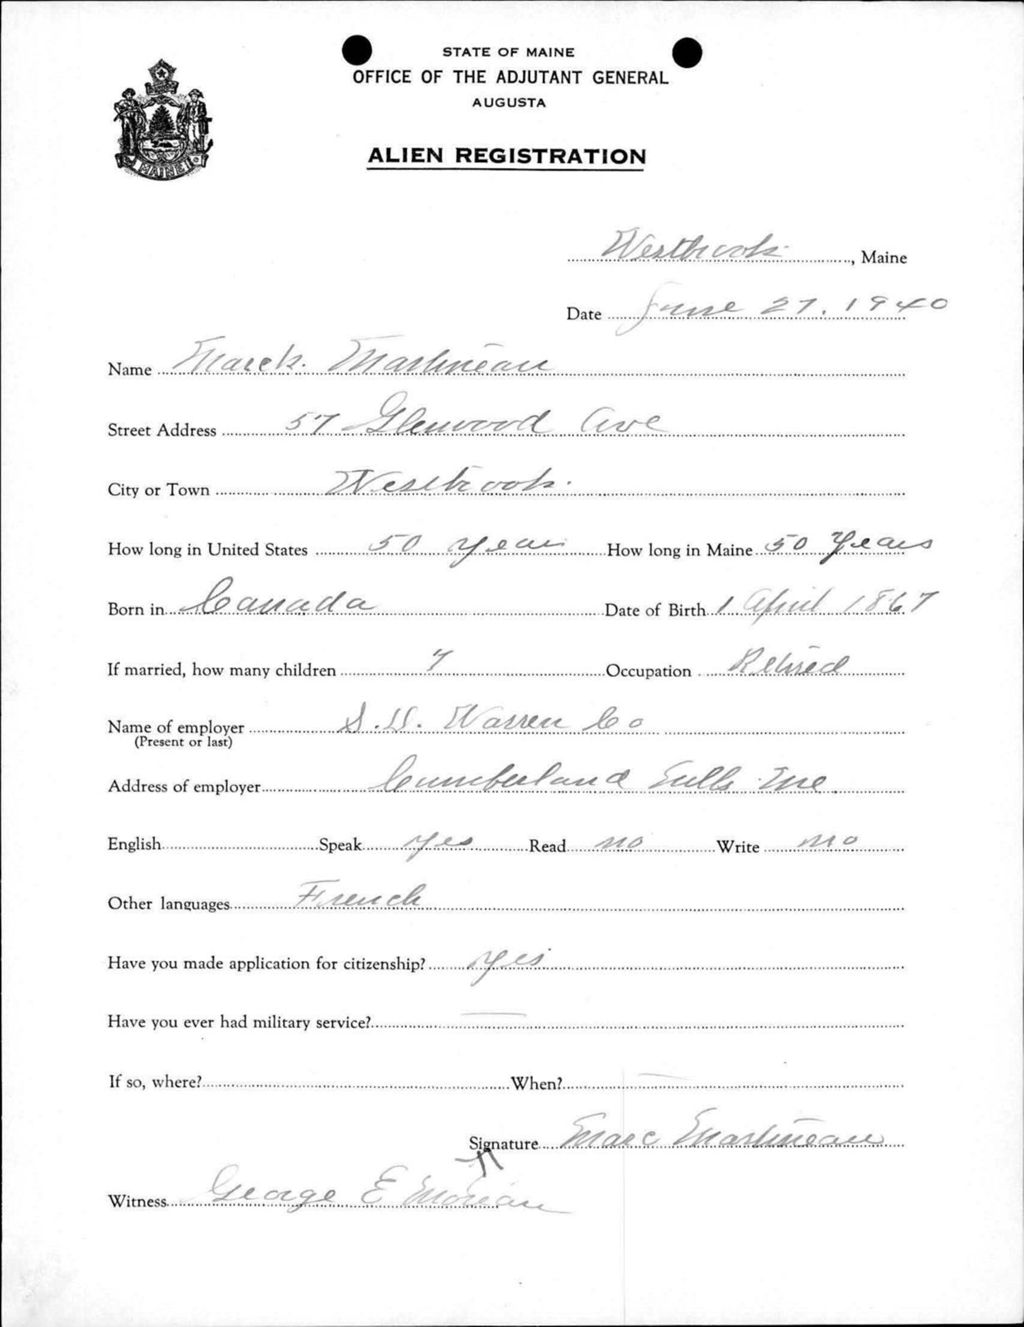 STATE OF MAINE
OFFICE OF THE ADJUTANT GENERAL
AUGUSTA
ALIEN REGISTRATION
MAINE
Westbrook, Maine
Date June 27, 1940
Name Marck. Martineau
Street Address 57 Glenwood Ave
City or Town Westbrook.
How long in United States 50 Years How long in Maine 50 Years
Born in Canada Date of Birth 1 April 1867
If married, how many children 7 Occupation Retired
Name of employer S.D. Warren Co
(Present or last)
Address of employer Cumberland Mills Me.
English Speak Yes Read no Write no
Other languages French
Have you made application for citizenship? Yes
Have you ever had military service? —
If so, where? When? —
Signature Marc Martineau
Witness George E